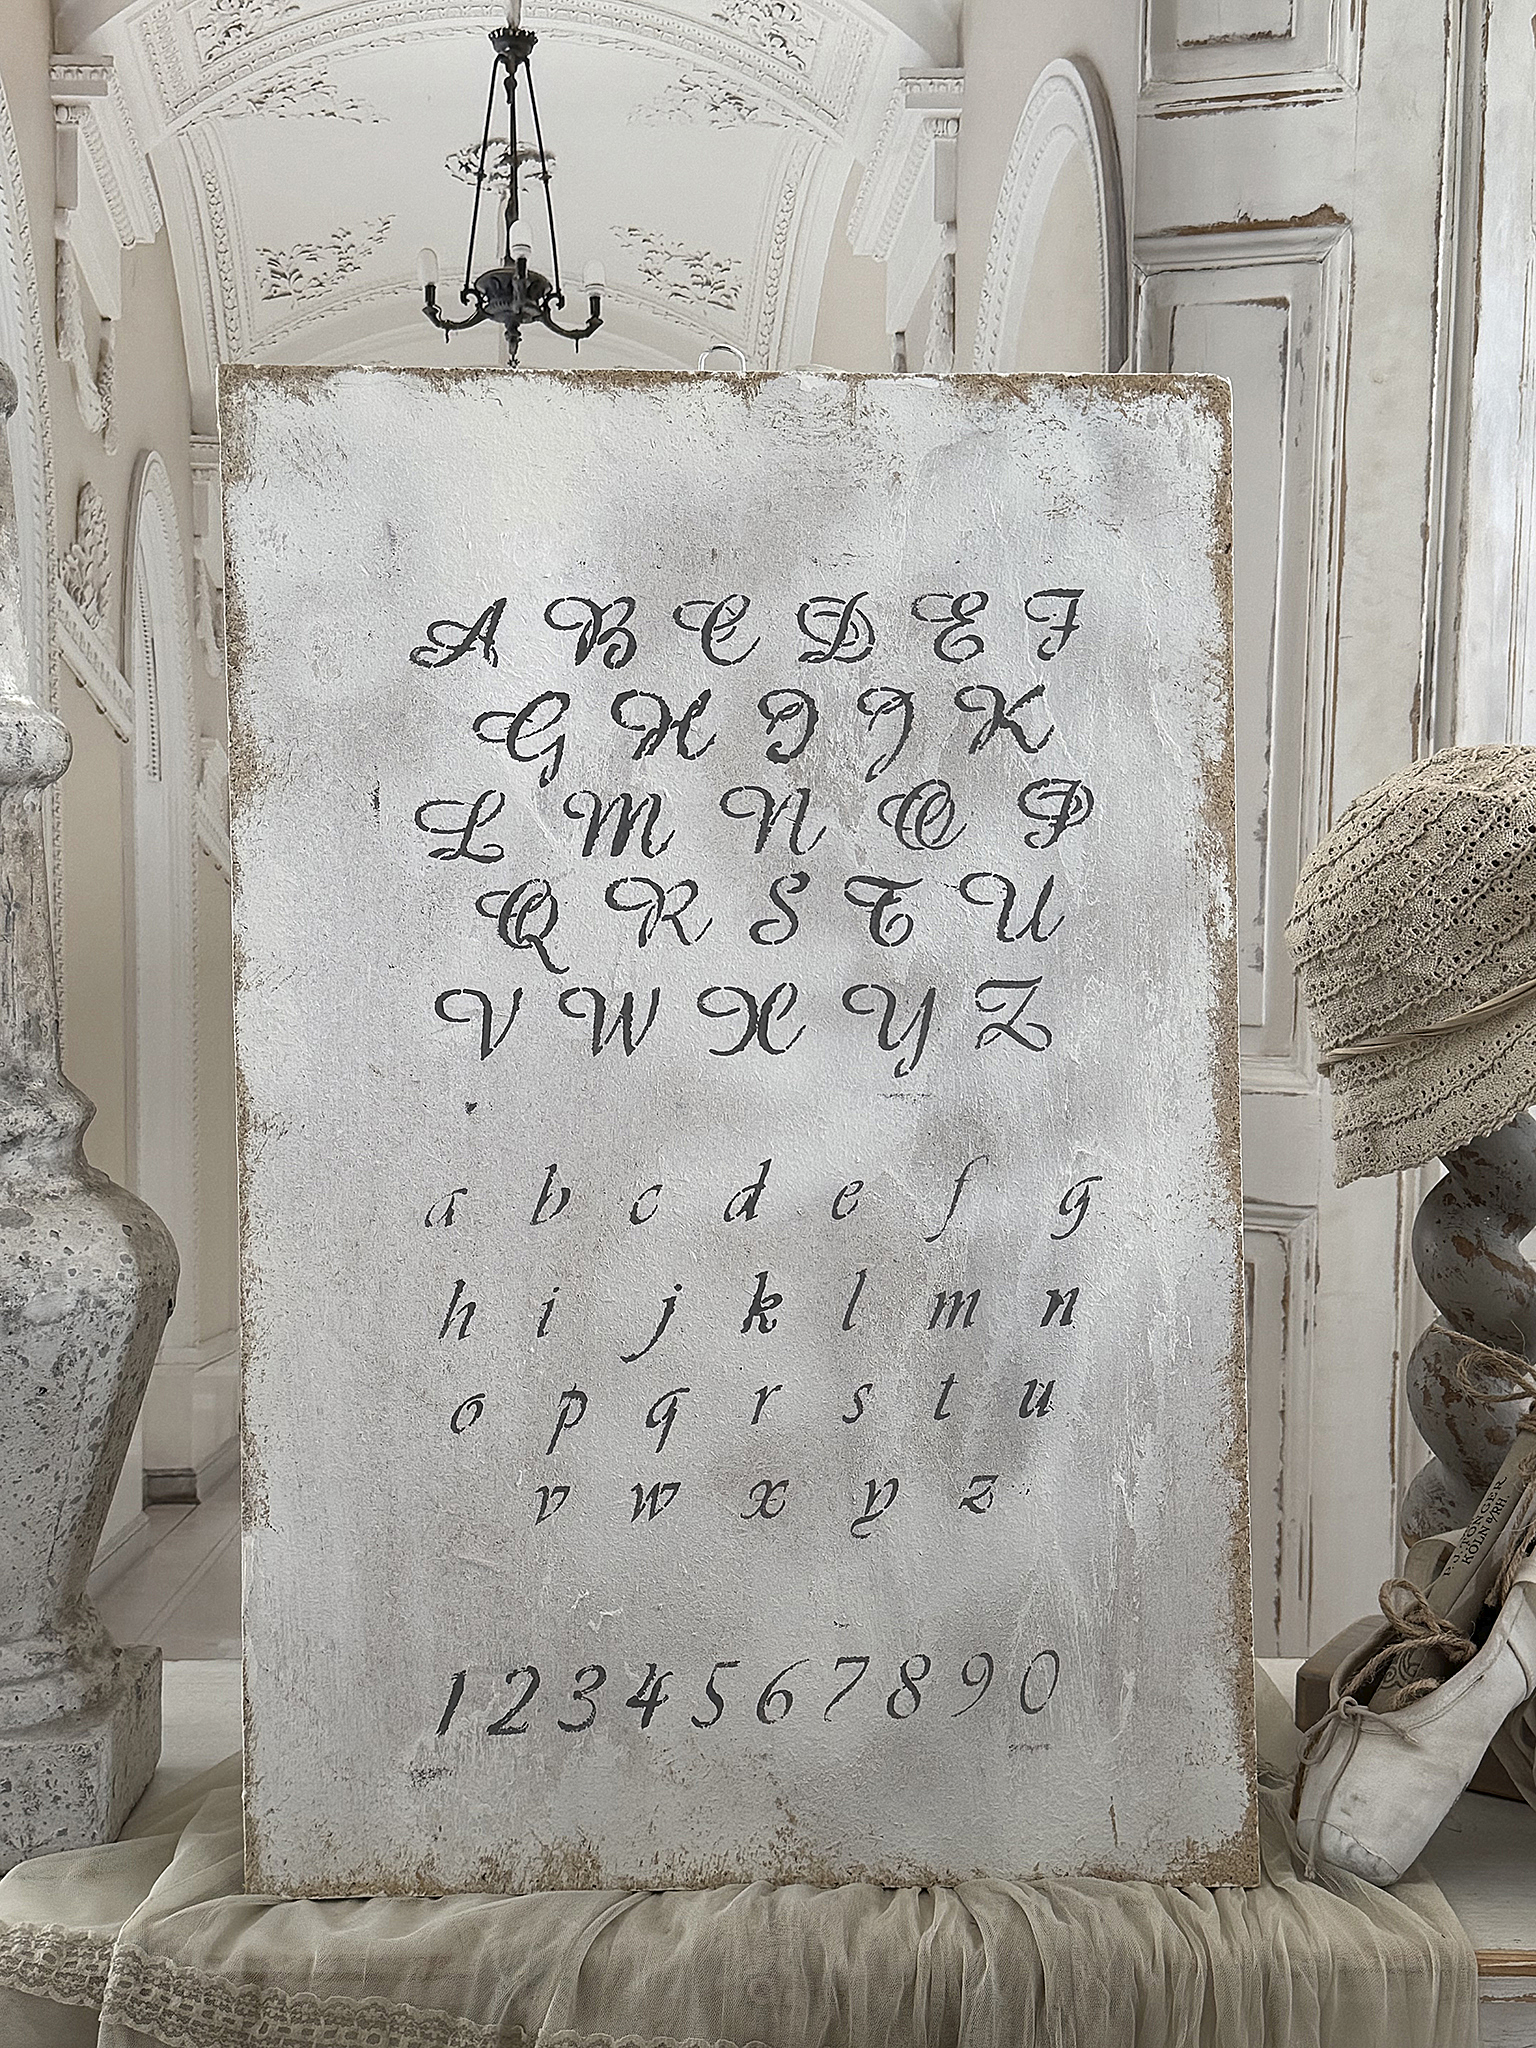 A B C D E F
G H I J K
L M N O P
Q R S T U
V W X Y Z
a b c d e f g
h i j k l m n
o p q r s t u
v w x y z
1 2 3 4 5 6 7 8 9 0
P. J. TONGER
KÖLN a/RH.